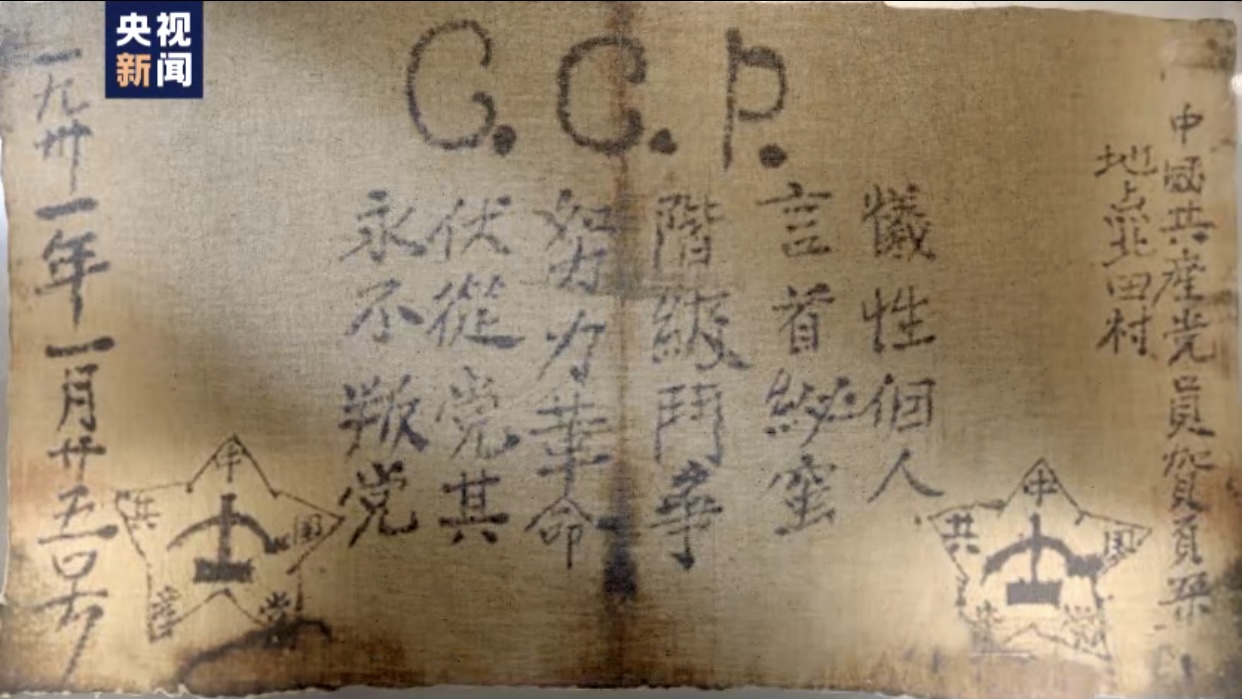 央视
新闻
C.C.P.
中國共産党員
地点北田村
犠性個人
言首秘蜜
階級鬥争
努力革命
伏從党其
永不叛党
一九卅一年一月廿五
中
共 国
産 党
中
共 国
産 党